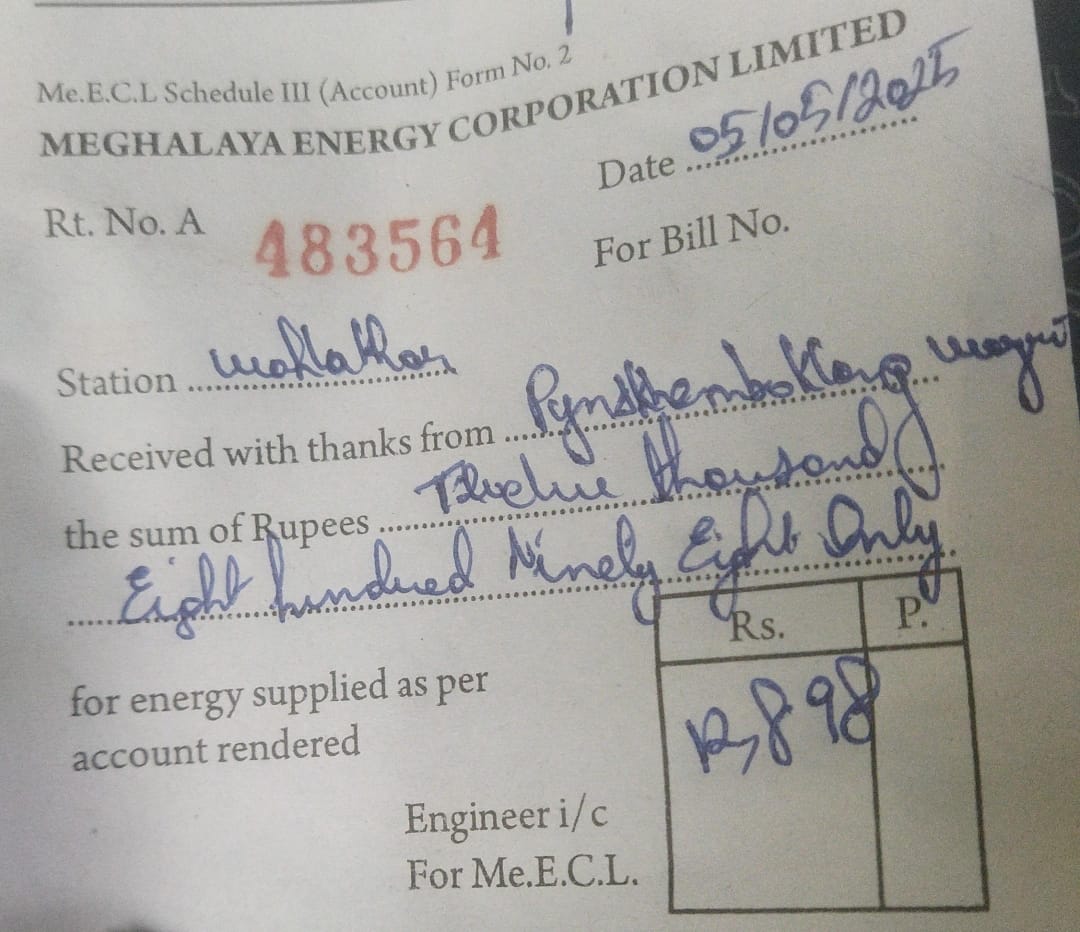 Me.E.C.L Schedule III (Account) Form No. 2
MEGHALAYA ENERGY CORPORATION LIMITED
Date 05/05/2025
Rt. No. A 483564
For Bill No.
Station
Received with thanks from Pynskhemboklang
the sum of Rupees Twelve thousand
Eight hundred Ninety Eight Only
Rs. P.
for energy supplied as per
12,898
account rendered
Engineer i/c
For Me.E.C.L.